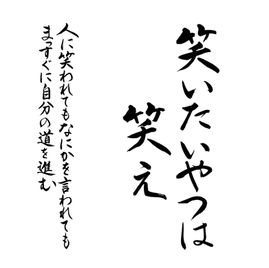 笑いたいやつは
笑え
人に笑われてもなにかを言われても
まっすぐに自分の道を進む